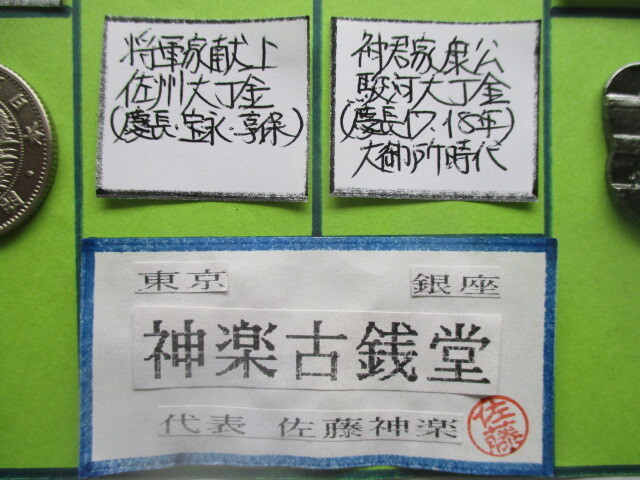 将軍家献上
佐州大丁金
(慶長・宝永・享保)
神君家康公
駿河大丁金
(慶長17.18年)
大御所時代
東京
銀座
神楽古銭堂
代表 佐藤神楽
佐藤